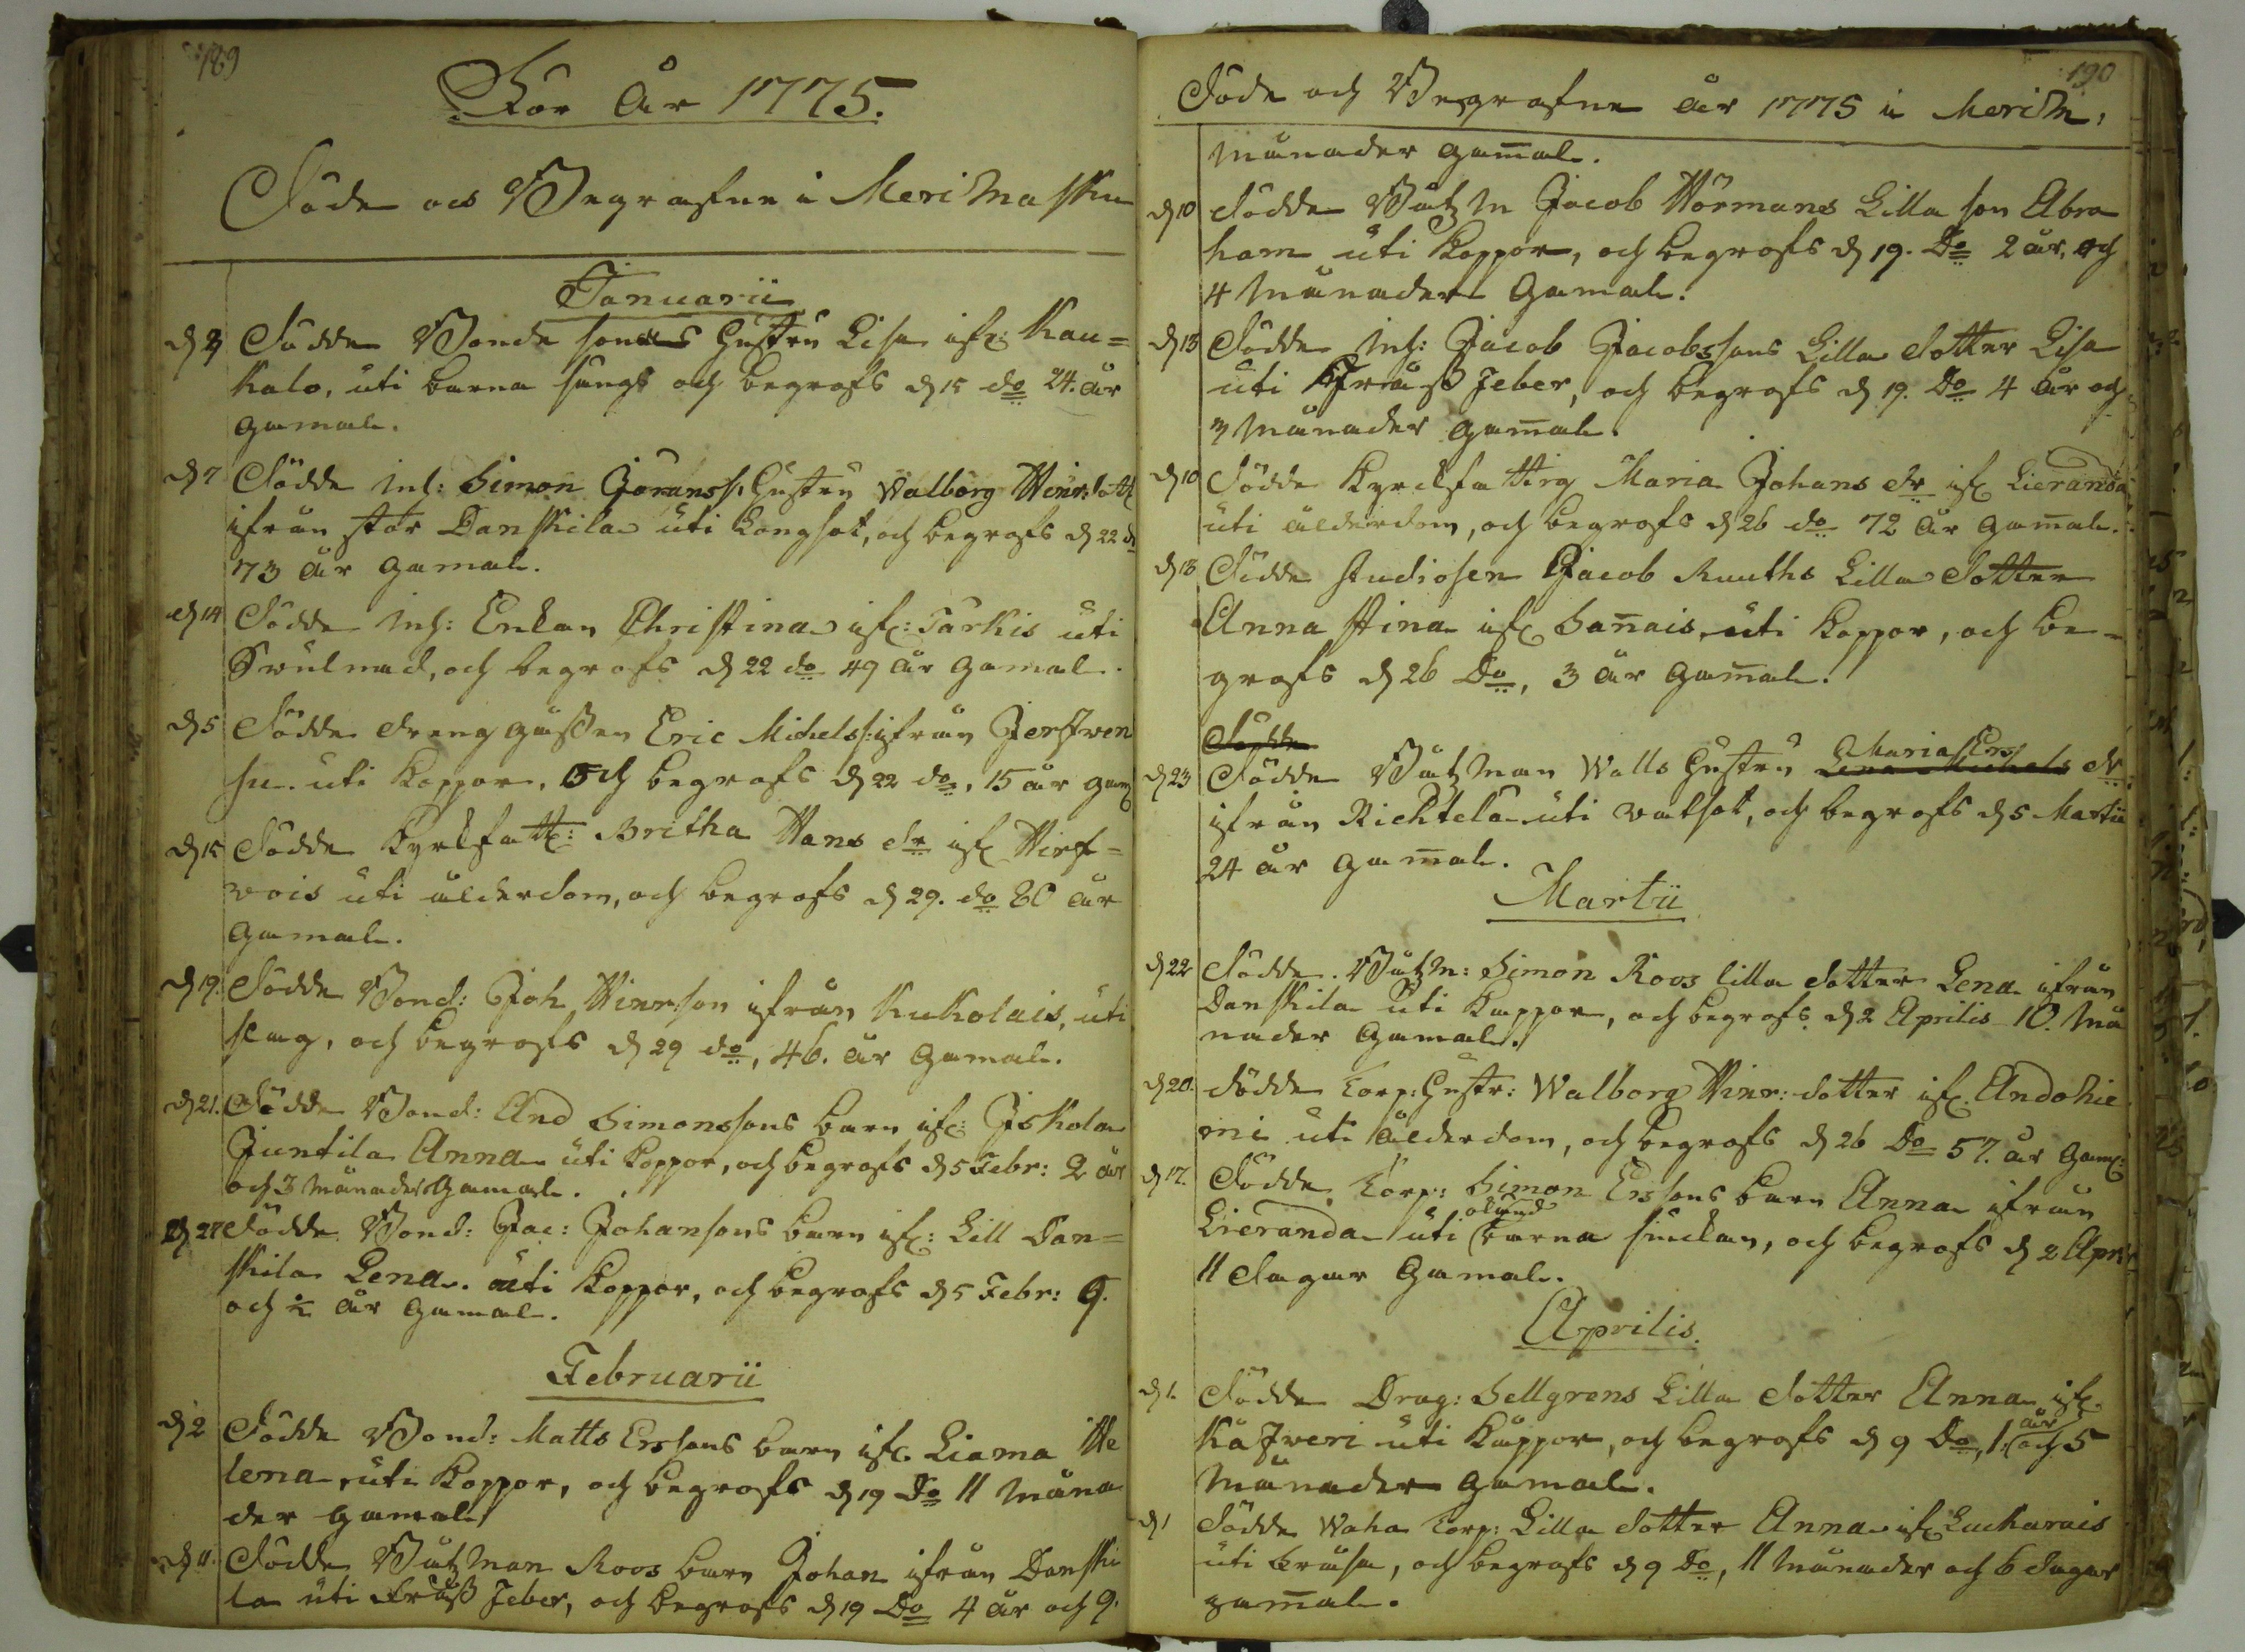 189
För År 1775.
Döde och Begrafne i Merimasku
Januarii
d 2 Dödde Bonde sonens Hustru Lisa ifr: Kau=
kalo, uti barna säng och begrofs d 15 do 24. år
gamal.
d 7 Dödde Inh: Simon Joranss: Hustru Walborg Hinr: dott
ifrån stor Danskila uti Longsot, och begrofs d 22 do
73 år gamal.
d 14 Dödde Inh: Enkan Christina ifr: Tarkis uti
Swulnad, och begrofs d 22 do 49 år gamal.
d 5 Dödde dreng gåssen Eric Michelss: ifrån Jerfwen
su uti koppor, och begrofs d 22 do, 15 år gam
d 15 Dödde Kyrkfatt: Britha Hans dr ifr Hirf=
vois uti ålderdom, och begrofs d 29. do 80 år
gamal.
d 19. Dödde Bond: Joh Hinrson ifrån Kukolais, uti
slag, och begrofs d 29 do, 46. år gamal.
d 21. Dödde Bond: And Simonssons barn ifr: Iskola
Juntila Anna uti koppor, och begrofs d 5 Febr: 2 år
och 3 månader gamal.
d 27 Dödde Bond: Jac: Johansons barn ifr: Lill Dan=
skila Lena. uti koppor, och begrofs d 5 Febr: 9.
och ½ år gamal.
Februarii
d 2 Dödde Bond: Matts Ersons barn ifr. Liama He
lena, uti koppor, och begrofs d 19 Do 11 måna
der gamal
d 11. Dödde Båtzman Roos barn Johan ifrån Danski
la uti Fräss Feber, och begrofs d 19 Do 4 år och 9.
190
Döde och Begrafne år 1775 i Merim,
månader gamal.
d 10 dödde Båtzm Jacob Hörmans Lilla son Abra
ham uti koppor, och begrofs d 19. Do 2 år, och
4 månader gamal.
d 13 Dödde Inh: Jacob Jacobssons Lilla dotter Lisa
uti Fräss Feber, och begrofs d 19. Do 4 år och
3 månader gamal.
d 10 Dödde Kyrckfattig Maria Johans dr ifr Lieranda
uti ålderdom, och begrofs d 26 do 72 år gamal.
d 18 Dödde studiosen Jacob Ruuths Lilla dotter
Anna Stina ifr Sanais, uti koppor, och be=
grofs d 26 Do, 3 år gamal.
Dödde
Maria Ers
d 23 Dödde Båtzman Walls Hustru Lena Michels dr:
ifrån Richtela uti watsot, och begrofs d 5 Martii
24 år gamal.
Martii
d 22 Dödde Båtzm: Simon Roos lilla dotter Lena ifrån
Danskila uti koppor, och begrofs d 2 Aprilis 10. må
nader gamal.
d 20. dödde Corp: Hustr: Walborg Hinr: dotter ifr. Andohie
mi uti ålderdom, och begrofs d 26 Do 57. år gam:
d 17. Dödde Corp: Simon Erssons barn Anna ifrån
ölund
Lieranda uti barna siukan, och begrofs d 2 Apri
11 dagar gamal.
Aprilis.
d 1. Dödde Drag: Hellgrens Lilla dotter Anna ifr.
år
Käfweri uti koppor, och begrofs d 9 Do, 1. och 5
månader gamal.
d 1 Dödde Waha Corp: Lilla dotter Anna ifr Lucharais
uti bråsa, och begrofs d 9 Do, 11 månader och 6 dagar
gamal.